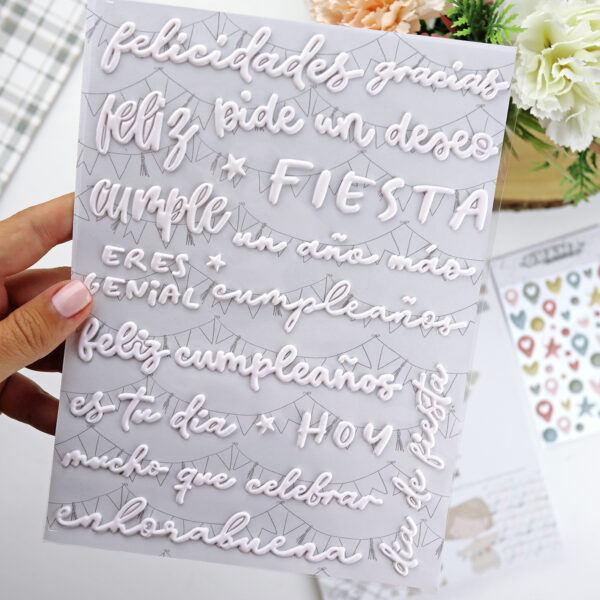 felicidades gracias
feliz pide un deseo
FIESTA
cumple un año máo
ERES
GENiAL cumpleaños
feliz cumpleaños
es tu dia HOY
mucho que celebrar
enhorabuena
día de fiesta